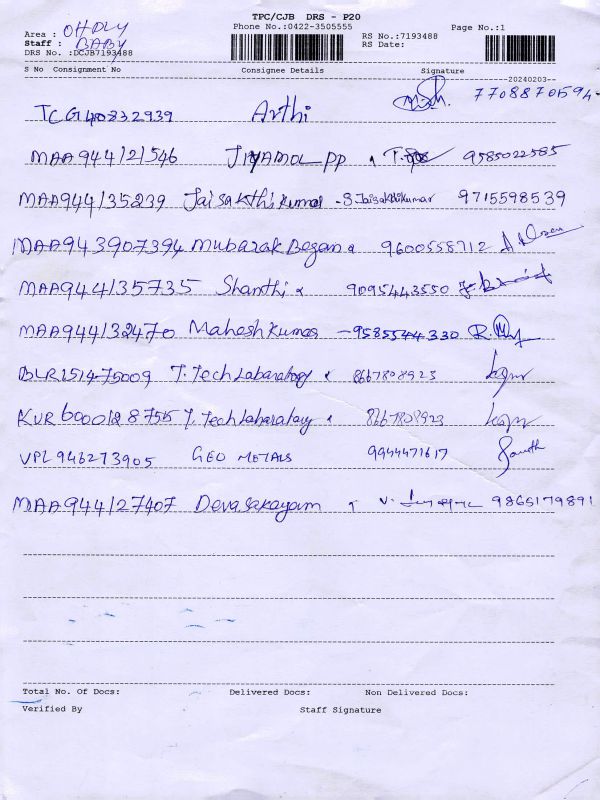 TPC/CJB DRS - P20
Phone No.:0422-3505555
Page No.:1
Area : OHDLY
Staff : BABY
DRS No. :DCJB7193488
RS No.:7193488
RS Date:
S No Consignment No Consignee Details Signature
20240203
TCG140832939 Arthi 7708870594
MAA944121546 JIYAMOL PP 9585022585
MAA944135239 Jaisakthikumar - S.Jaisakthikumar 9715598539
MAA943907394 Mubarak Begam 9600558712
MAA944135735 Shanthi 9095443550
MAA944132470 Maheshkumar - 9585544330
BLR151475009 T.Tech Labaratory 8667808923
KUR6000128755 T.Tech Labaratory 8667808923
VPL946273905 GEO METALS 9944471617
MAA944127407 Devasakayam 9865179891
Total No. Of Docs: Delivered Docs: Non Delivered Docs:
Verified By Staff Signature